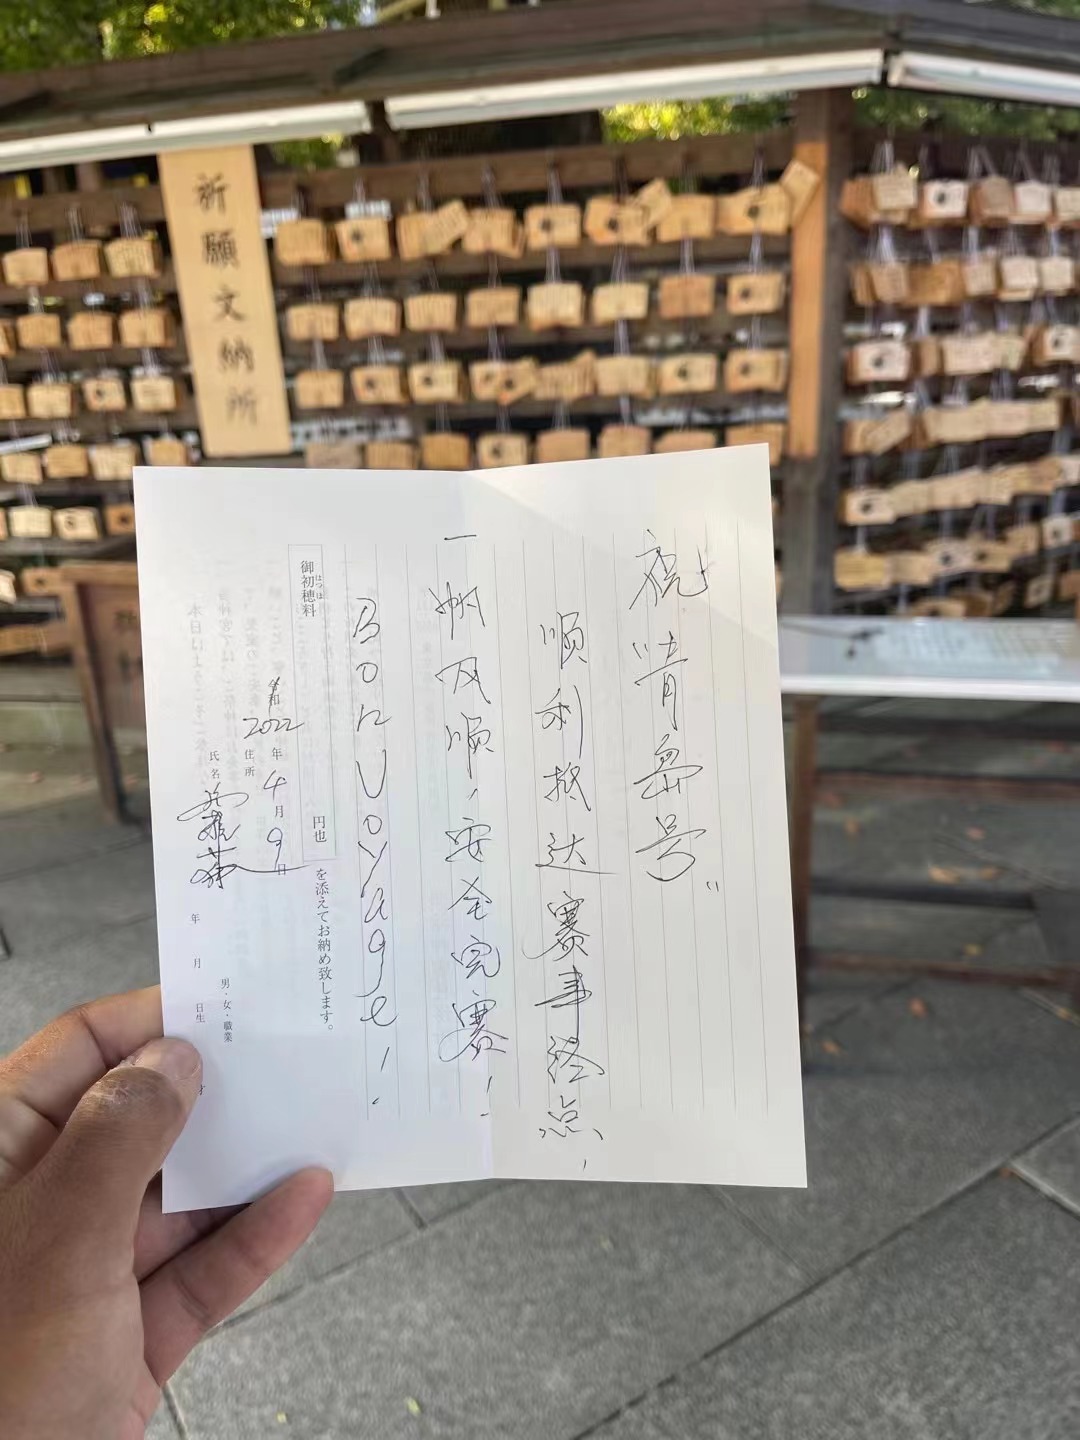 祈願文納所
祝
"青岛号"
顺利抵达赛事终点，
一帆风顺，安全完赛！
Bon Voyage！
御初穂料
はつほ
円也
を添えてお納め致します。
令和
2022年4月9日
住所
氏名
年 月 日生 才
男・女・職業